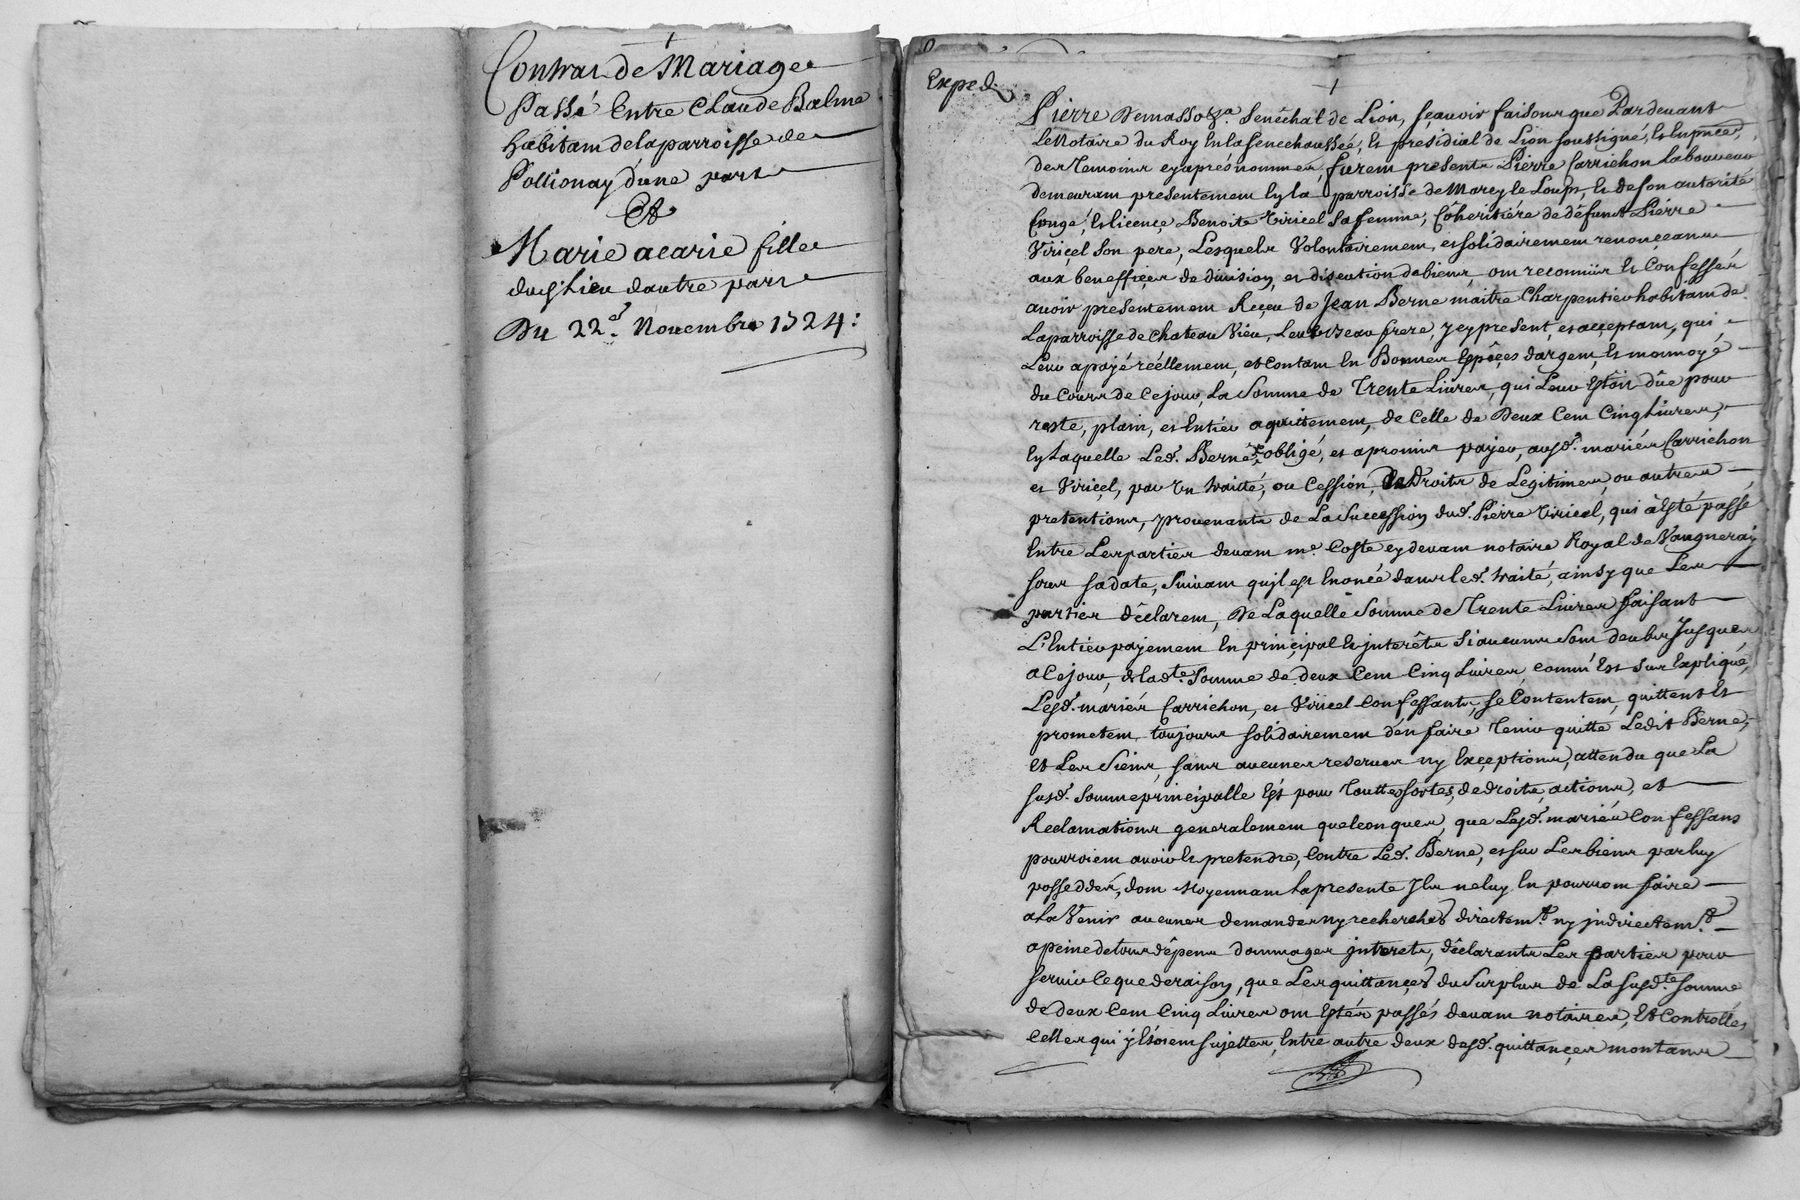 Contrat de Mariage
Passé Entre Claude Balme
habitant de la parroisse de
Pollionay d'une part
Et
Marie acarie fille
dud. Lieu d'autre part
Du 22e. Novembre 1724:
Exped.
Pierre Demasso Senêchal de Lion, sçauoir faisons que Pardeuant
Le Notaire du Roy En la Seneschaussée, Et presidial de Lion soussigné, Et En pnce
des Temoins cy aprés nommés, furent presents Pierre Carrichon Laboureur
demeurant presentement En la parroisse de Marcy le Loup, Et de son autorité
Congé, Et licence, Benoite Viricel sa femme, Cöheritiére de défunt Piérre
Viriçel son pere, Lesquels Volontairement, et solidairement renonçeants
aux beneffiçes de diuision, et discution de biens, ont reconnüs Et Confessés
auoir presentement Reçeu de Jean Berne maitre Charpentier habitant de
La parroisse de Chateau Vieu, Leur Beau frere, Jcy present, et acçeptant, qui
Leur a payé réellement, et contant En Bonnes Espêces d'argent, Et monnoyé
du Cours de Ce jour, La Somme de Trente Liures, qui Leur Estôit dûe pour
reste, plain, et Entier aquittement, de Celle de Deux Cent Cinq Liures,
En Laquelle Led. Berne s'est obligé, et a promis payer, ausd. mariés Carrichon
et Viriçel, par Un traitté, ou Cession, De Droits de Legitimes, ou autres
pretentions, prouenants de La Succession dud. Piérre Viricel, qui à Esté passé
Entre Les parties deuant me. Coste cy deuant notaire Royal de Vaugneray
sous sa date, Suiuant qu'jl est Enoncé dans led. traité, ainsy que Les
parties déclarent, De Laquelle Somme de Trente Liures faisant
L'Entier payement En prinçipal Et jnterêts si aucuns Sont deubs Jusques
a Ce jour, de lad.te Somme de deux Cent Cinq Liures, comm'Est sus Expliqué,
Lesd. mariés Carrichon, et Viricel Confessants, se Contentent, quittent Et
prometent toujours solidairement d'en faire Tenir quitte Ledit Berne,
Et Les Siens, sans aucunes reserues ny Exçeptions, attendu que La
susd. Somme principalle Est pour Touttes sortes, de droits, actions, et
Reclamations generalement quelconques, que Lesd. mariés Confessans
pourroient auoir Et pretendre, Contre Led. Berne, et sur Les biens par luy
posseddés, dont Moyennant La presente Jls ne luy En pourront faire
a La Venir aucunes demandes ny recherches directem.t ny jndirectem.t
a peine de tous dêpens dommages jnterets, déclarants Les parties pour
seruir Ce que de raison, que Les quittançes du Surplus de La susd.te somme
de deux Cent Cinq Liures ont Estés passés deuant notaires, Et Controllés
Celles qui y Etôient sujettes, Entre autre deux desd. quittançes montants